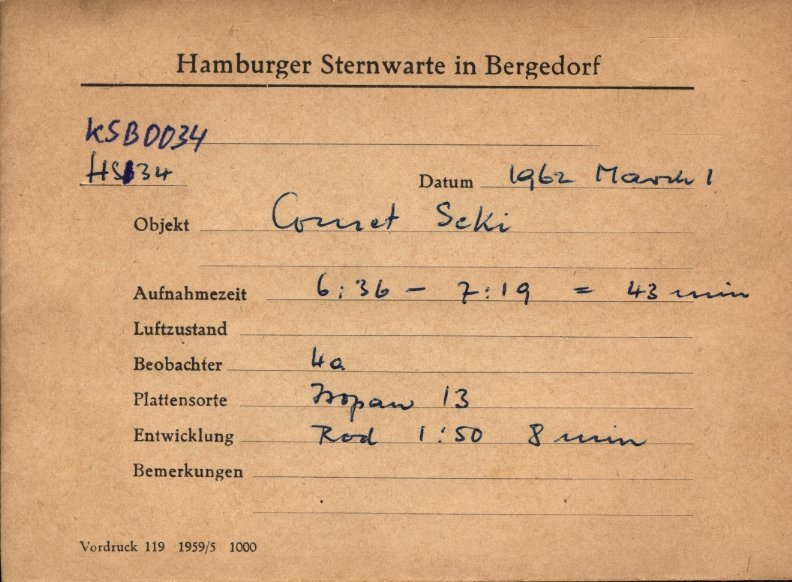 Hamburger Sternwarte in Bergedorf
KSB0034
HS134
Datum 1962 March 1
Objekt Comet Seki
Aufnahmezeit 6:36 – 7:19 = 43 min
Luftzustand
Beobachter
Plattensorte Isopan 13
Entwicklung Rod 1:50 8 min
Bemerkungen
Vordruck 119 1959/5 1000